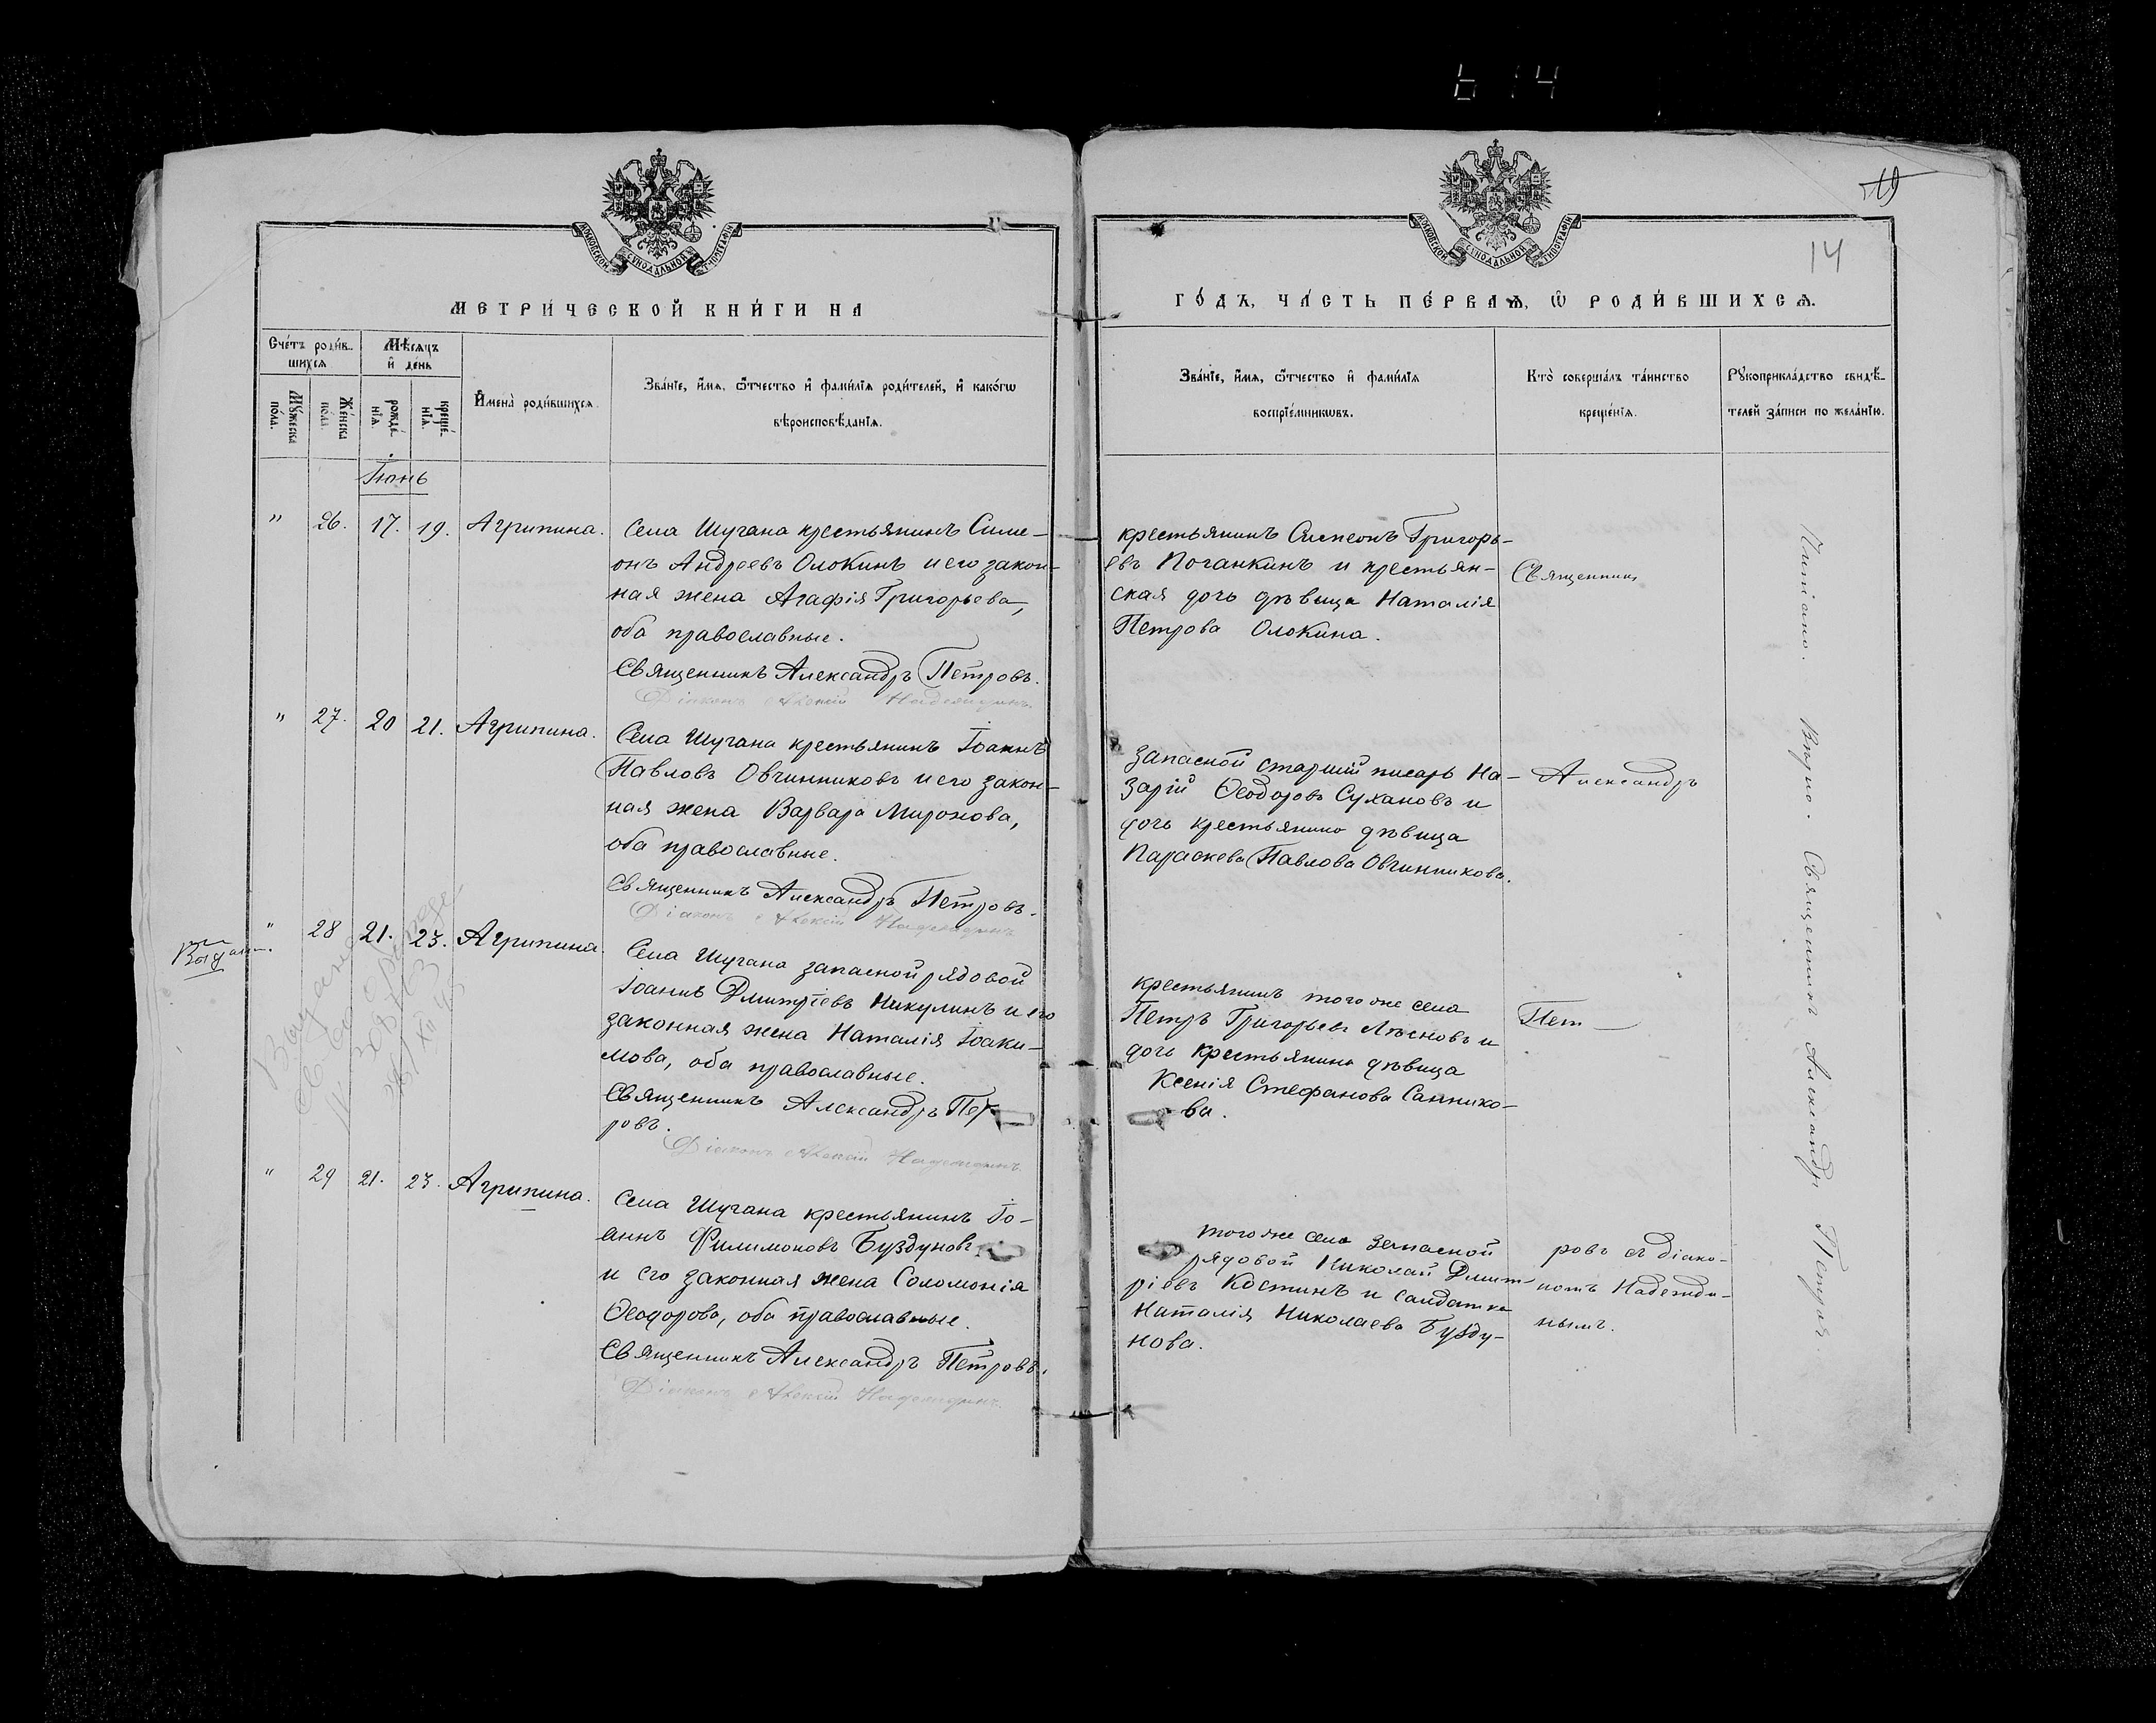 19
14
МОСКОВСКОЙ СѴНОДАЛЬНОЙ ТИПОГРАФІИ
МЕТРИ́ЧЕСКОЙ КНИ́ГИ НА
Сче́тъ роди́в-
шихся
Мѣ́сяцъ
и҆ де́нь
Мꙋ́жеска
по́ла.
Же́нска
по́ла.
рожде́-
нїѧ.
креще́-
нїѧ.
И҆мена̀ роди́вшихся.
Зва́нїе, и҆́мѧ, ѻ҆́тчество и҆ фами́лїѧ роди́телей, и҆ како́гѡ
вѣроисповѣ́данїѧ.
Іюнь
" 26. 17. 19. Агрипина.
Села Шугана крестьянинъ Симе-
онъ Андреевъ Олокинъ и его закон-
ная жена Агафія Григорьева,
оба православные.
Священникъ Александръ Петровъ.
Діаконъ Алексій Надеждинъ.
" 27. 20 21. Агрипина.
Села Шугана крестьянинъ Іоаннъ
Павловъ Овчинниковъ и его закон-
ная жена Варвара Миронова,
оба православные.
Священникъ Александръ Петровъ.
Діаконъ Алексій Надеждинъ
" 28 21. 23. Агрипина.
Села Шугана запасной рядовой
Іоаннъ Дмитріевъ Никулинъ и его
законная жена Наталія Іоаки-
мова, оба православные.
Священникъ Александръ Пет-
ровъ.
Діаконъ Алексій Надеждинъ.
" 29 21. 23. Агрипина.
Села Шугана крестьянинъ Іо-
аннъ Филимоновъ Буздуновъ
и его законная жена Соломонія
Ѳеодорова, оба православные.
Священникъ Александръ Петровъ.
Діаконъ Алексій Надеждинъ.
МОСКОВСКОЙ СѴНОДАЛЬНОЙ ТИПОГРАФІИ
ГО́ДЪ, ЧА́СТЬ ПЕ́РВАѦ, Ѡ҆ РОДИ́ВШИХСѦ.
Зва́нїе, и҆́мѧ, ѻ҆́тчество и҆ фами́лїѧ
воспрїе́мникѡвъ.
Кто̀ соверша́лъ та́инство
креще́нїѧ.
Рꙋкоприкла́дство свидѣ́-
телей за́писи по жела́нїю.
крестьянинъ Симеонъ Григорь-
евъ Поганкинъ и крестьян-
ская дочь дѣвица Наталія
Петрова Олокина.
запасной старшій писарь На-
зарій Ѳеодоровъ Сухановъ и
дочь крестьянина дѣвица
Параскева Павлова Овчинникова.
крестьянинъ того же села
Петръ Григорьевъ Лѣсновъ и
дочь крестьянина дѣвица
Ксенія Стефанова Саннико-
ва.
того же села запасной
рядовой Николай Дмит-
ріевъ Костинъ и салдатка
Наталія Николаева Бузду-
нова.
Священникъ
Александръ
Пет-
ровъ съ діако-
номъ Надежди-
нымъ.
Читано. Вѣрно. Священникъ Александръ Петровъ.